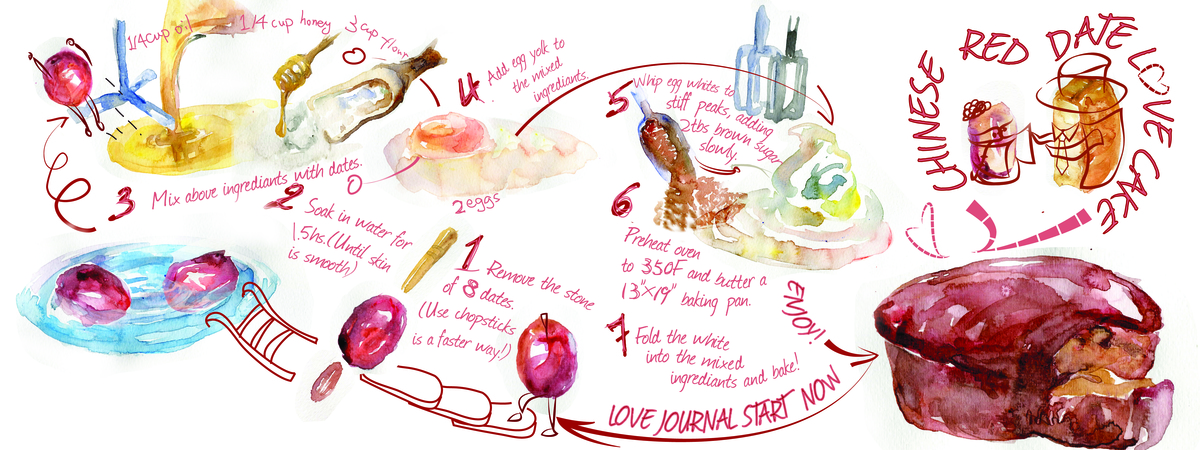 CHINESE RED DATE LOVE CAKE
LOVE JOURNAL START NOW
1 Remove the stone
of 8 dates.
(Use chopsticks
is a faster way!)
2 Soak in water for
1.5hs. (Until skin
is smooth)
3 Mix above ingrediants with dates.
1/4 cup oil
1/4 cup honey
3 cup flour
4. Add egg yolk to
the mixed
ingrediants.
2 eggs
5 Whip egg whites to
stiff peaks, adding
2tbs brown sugar
slowly.
6 Preheat oven
to 350F and butter a
13"×19" baking pan.
7 Fold the white
into the mixed
ingrediants and bake!
ENJOY!